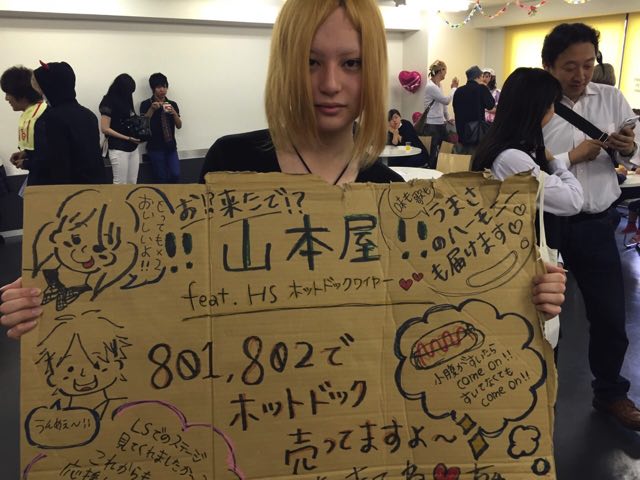 とっても×2
おいしいよ!!
お!?来たで!?
!!山本屋!!
feat. HS ホットドックワイヤー
味も歌も
うまさ
のハーモニー
も届けます
801,802で
ホットドック
売ってますよ〜
小腹がすいたら
come on!!
すいてなくても
come on!!
うんめぇ〜!!
LSでのステージ
見てくれましたか〜?
これからも